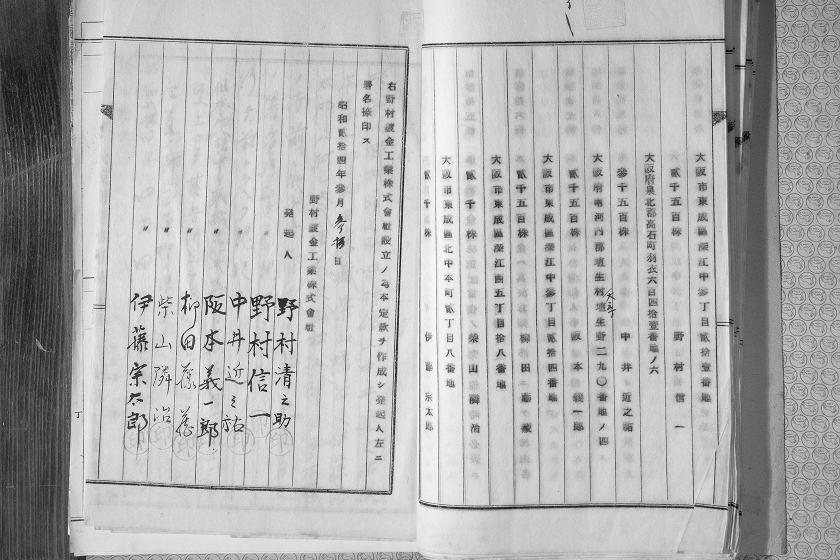 大阪市東成區深江中參丁目貳拾壹番地
貳千五百株 野村信一
大阪府泉北郡高石町羽衣六百四拾壹番地ノ六
參千五百株 中井近之祐
大阪府南河内郡埴生村埴生野二九〇番地ノ四
貳千五百株 阪本義一郎
大阪市東成區深江中參丁目貳拾四番地
貳千五百株 柳田藤藏
大阪市東成區深江西五丁目拾八番地
貳千株 柴山隣治
大阪市東成區北中本町貳丁目八番地
貳千株 伊藤宗太郎
右野村鍍金工業株式會社設立ノ為本定款ヲ作成シ發起人左ニ
署名捺印ス
昭和貳拾四年參月參拾日
野村鍍金工業株式會社
發起人 野村清之助
〃 野村信一
〃 中井近之祐
〃 阪本義一郎
〃 柳田藤藏
〃 柴山隣治
〃 伊藤宗太郎